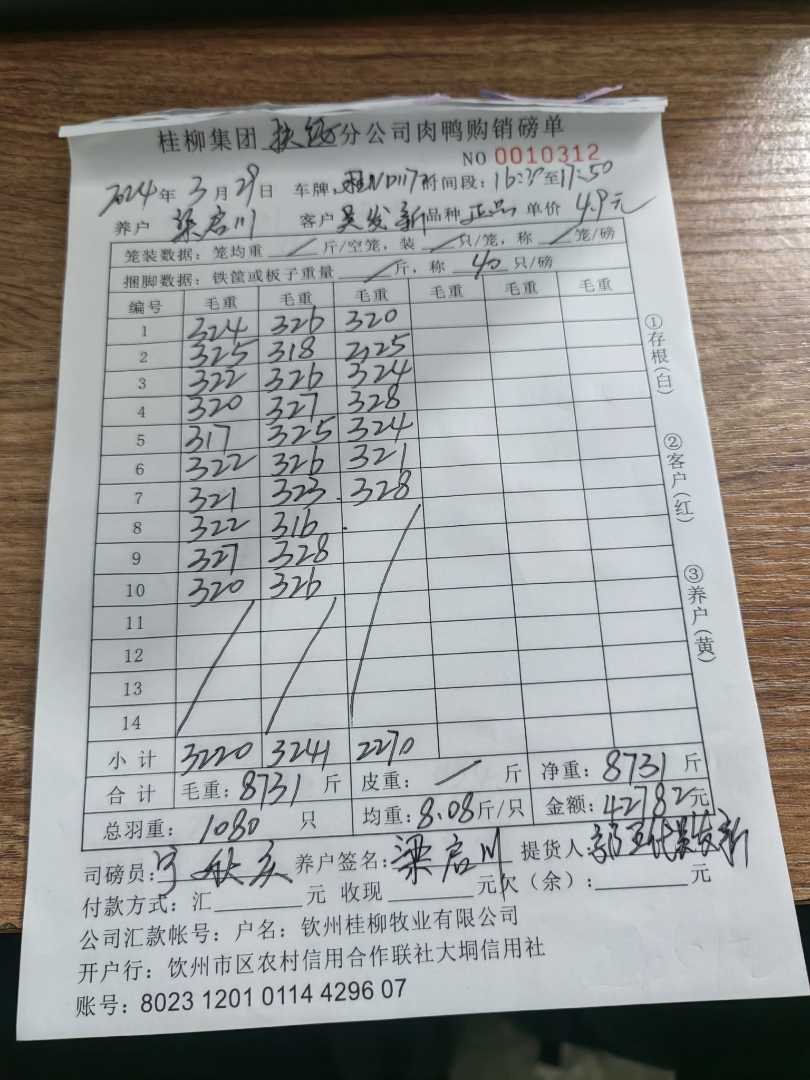 桂柳集团 扶绥 分公司肉鸭购销磅单
NO 0010312
2024 年 3 月 29 日 车牌:桂ND117 时间段:16:30至17:50
养户 梁启川 客户 吴发新 品种 正品 单价 4.9元
笼装数据:笼均重 / 斤/空笼,装 / 只/笼,称 / 笼/磅
捆脚数据:铁筐或板子重量 / 斤,称 40 只/磅
编号 毛重 毛重 毛重 毛重 毛重 毛重
1 324 326 320
2 325 318 325
3 322 326 324
4 320 327 328
5 317 325 324
6 322 326 321
7 321 323 328
8 322 316
9 327 328
10 320 326
11
12
13
14
小计 3220 3241 2270
合计 毛重:8731 斤 皮重: / 斤 净重:8731 斤
总羽重: 1080 只 均重:8.08斤/只 金额:42782元
司磅员: 养户签名:梁启川 提货人: 代吴发新
付款方式:汇______元 收现______元欠(余):______元
公司汇款帐号:户名:钦州桂柳牧业有限公司
开户行:饮州市区农村信用合作联社大垌信用社
账号:8023 1201 0114 4296 07
①存根(白)
②客户(红)
③养户(黄)